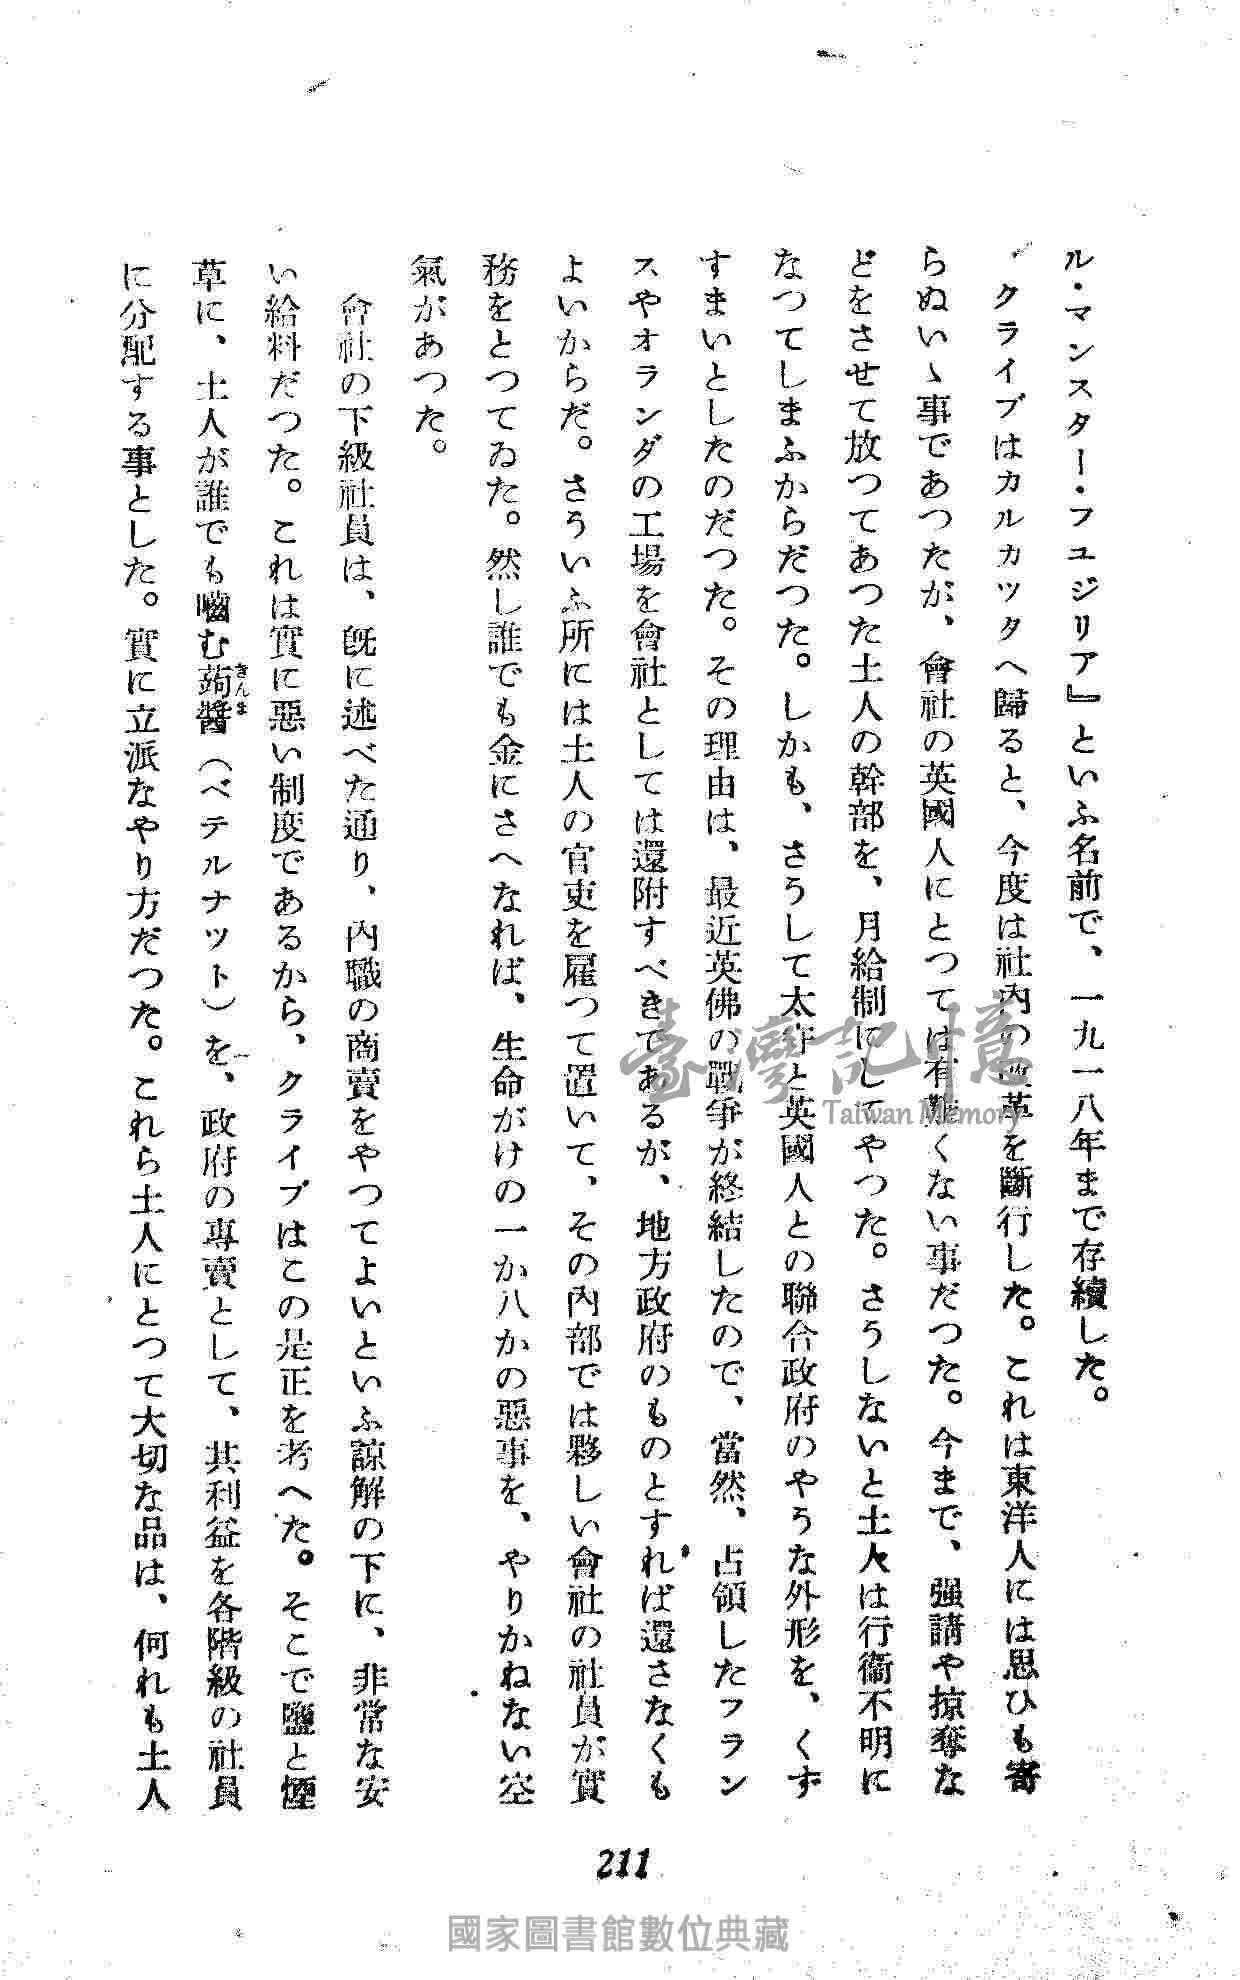 ル・マンスター・フユジリア』といふ名前で、一九一八年まで存續した。
クライブはカルカッタへ歸ると、今度は社内の改革を斷行した。これは東洋人には思ひも寄
らぬいゝ事であつたが、會社の英國人にとつては有難くない事だつた。今まで、强請や掠奪な
どをさせて放つてあつた土人の幹部を、月給制にしてやつた。さうしないと土人は行衞不明に
なつてしまふからだつた。しかも、さうして太守と英國人との聯合政府のやうな外形を、くず
すまいとしたのだつた。その理由は、最近英佛の戰爭が終結したので、當然、占領したフラン
スやオランダの工場を會社としては還附すべきであるが、地方政府のものとすれば還さなくも
よいからだ。さういふ所には土人の官吏を雇つて置いて、その内部では夥しい會社の社員が實
務をとつてゐた。然し誰でも金にさへなれば、生命がけの一か八かの惡事を、やりかねない空
氣があつた。
會社の下級社員は、既に述べた通り、内職の商賣をやつてよいといふ諒解の下に、非常な安
い給料だつた。これは實に惡い制度であるから、クライブはこの是正を考へた。そこで鹽と煙
草に、土人が誰でも嚙む蒟醬（ベテルナット）を、政府の專賣として、其利益を各階級の社員
きんま
に分配する事とした。實に立派なやり方だつた。これら土人にとつて大切な品は、何れも土人
211
臺灣記憶
Taiwan Memory
國家圖書館數位典藏